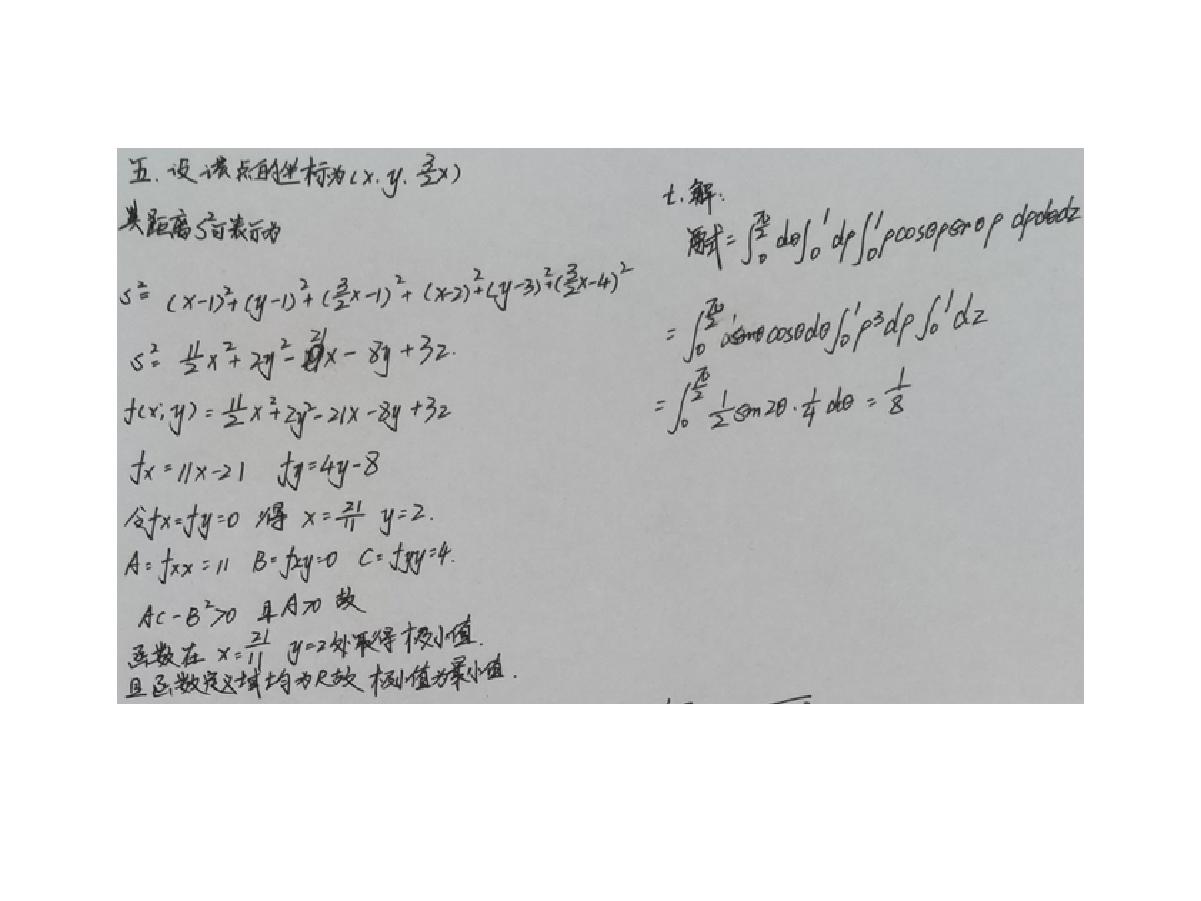 五. 设该点的坐标为(x, y, 3/2x)
其距离S²可表示为
S² = (x-1)²+(y-1)²+(3/2x-1)²+(x-2)²+(y-3)²+(3/2x-4)²
S² = 11/2x²+2y²-21x-8y+32.
f(x,y) = 11/2x²+2y²-21x-8y+32
fx = 11x-21 fy=4y-8
令fx=fy=0 得 x=21/11 y=2.
A=fxx=11 B=fxy=0 C=fyy=4.
AC-B²>0 且A>0 故
函数在 x=21/11 y=2处取得极小值.
且函数定义域均为R故 极小值为最小值.
七.解:
原式=∫₀^(π/2) dθ∫₀¹ dρ∫₀¹ρcosθρsinθρ dρdθdz
=∫₀^(π/2) sinθcosθdθ∫₀¹ρ³dρ∫₀¹dz
=∫₀^(π/2) 1/2 sin2θ·1/4 dθ=1/8